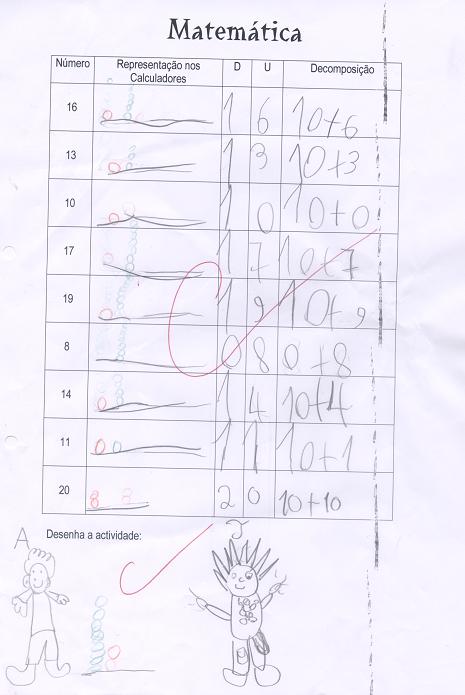 Matemática
Número Representação nos Calculadores D U Decomposição
16 1 6 10+6
13 1 3 10+3
10 1 0 10+0
17 1 7 10+7
19 1 9 10+9
8 0 8 0+8
14 1 4 10+4
11 1 1 10+1
20 2 0 10+10
Desenha a actividade:
A J